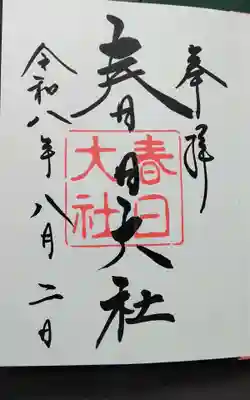 奉拝
春日大社
春日
大社
令和八年八月二日